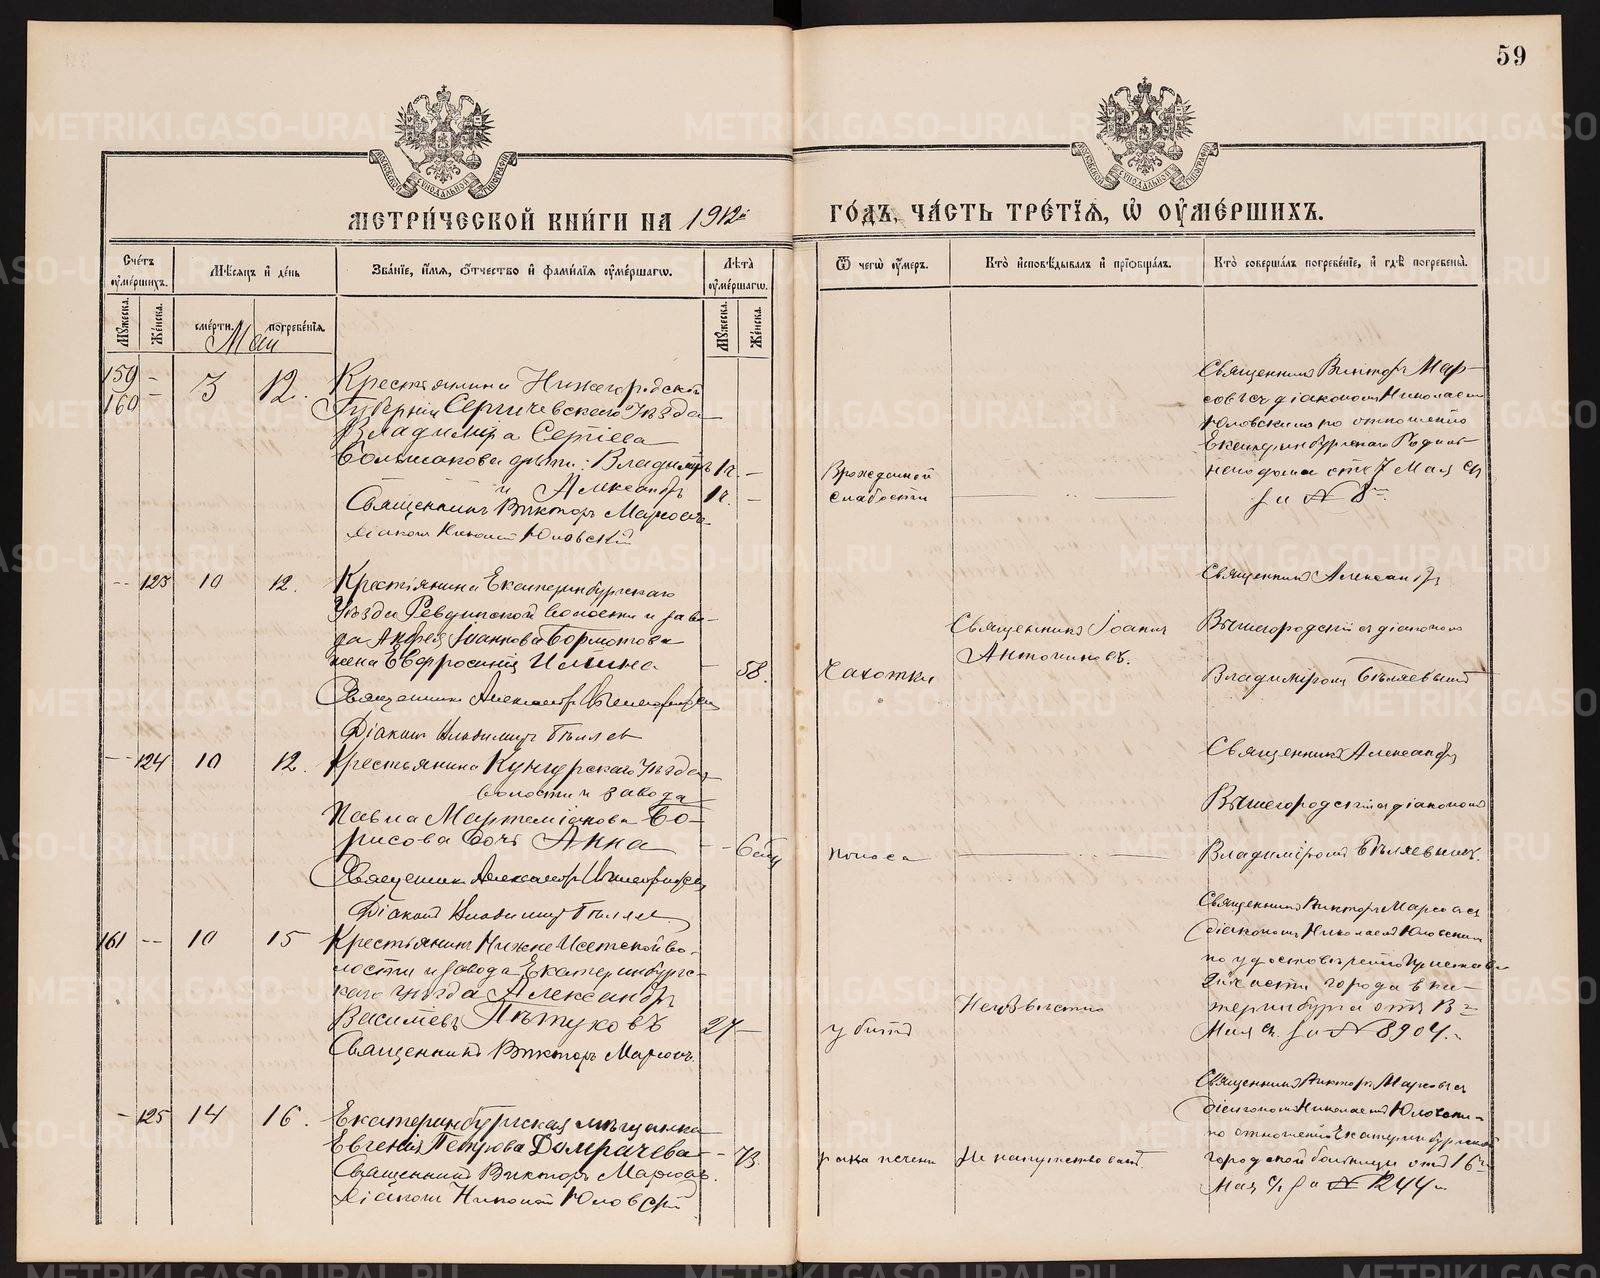 59
МЕТРИ́ЧЕСКОЙ КНИ́ГИ НА 1912й
ГО́ДЪ, ЧА́СТЬ ТРЕ́ТІѦ, Ѡ ОУ҆МЕ́РШИХЪ.
Сче́тъ оумершихъ.
Мѣсяцъ и день
Зва́ніе, и́мя, о́тчество и фамилія оумершагѡ.
Лѣта оумершагѡ.
Ѿ чегѡ оумеръ.
Кто исповѣдывалъ и пріобщалъ.
Кто совершалъ погребеніе, и гдѣ погребены.
Мужеска.
Женска.
смерти.
погребенія.
Мужеска.
Женска.
Май
159 –
160 –
3
12.
Крестьянина Нижегородской
Губерніи Сергачевскаго Уѣзда
Владиміра Сергіева
Большакова дѣти: Владиміръ 1 ч. –
и Александръ 1 ч. –
Священникъ Викторъ Марковъ
Діаконъ Николай Юловскій
Врожденной
слабости
Священникъ Викторъ Мар-
ковъ съ діакономъ Николаемъ
Юловскимъ по отношенію
Екатеринбургскаго Родиль-
наго дома отъ 7 Мая сг
за № 8
–
123
10
12.
Крестьянина Екатеринбургскаго
Уѣзда Ревдинской волости и заво-
да Андрея Іоаннова Бормотова
жена Евфросинія Ильина
– 58.
Священникъ Александръ Вышегородскій
Діаконъ Владиміръ Бѣляевъ
Чахотки
Священникъ Іоаннъ
Антониновъ.
Священникъ Александръ
Вышегородскій съ діакономъ
Владиміромъ Бѣляевымъ
–
124
10
12.
Крестьянина Кунгурскаго Уѣзда
волости и завода
Павла Мартеміанова Бо-
рисова дочь Анна
–
Священникъ Александръ Вышегородскій
Діаконъ Владиміръ Бѣляевъ
поноса
Священникъ Александръ
Вышегородскій съ діакономъ
Владиміромъ Бѣляевымъ.
161
–
10
15
Крестьянинъ Нижне Исетской во-
лости и завода Екатеринбургс-
каго уѣзда Александръ
Васильевъ Пѣтуховъ
27 –
Священникъ Викторъ Марковъ
убитъ
Неизвѣстно
Священникъ Викторъ Марковъ съ
діакономъ Николаемъ Юловскимъ
по удостовѣренію Пристава
2й части города Ека-
теринбурга отъ 13
Мая сг. за № 8904.
–
125
14
16.
Екатеринбургская мѣщанка
Евгенія Петрова Домрачева
– 73.
Священникъ Викторъ Марковъ.
Діаконъ Николай Юловскій
рака печени
Не напутствована.
Священникъ Викторъ Марковъ съ
діакономъ Николаемъ Юловским
по отношенію Екатеринбургской
городской больницы отъ 16
Мая сг за № 1244